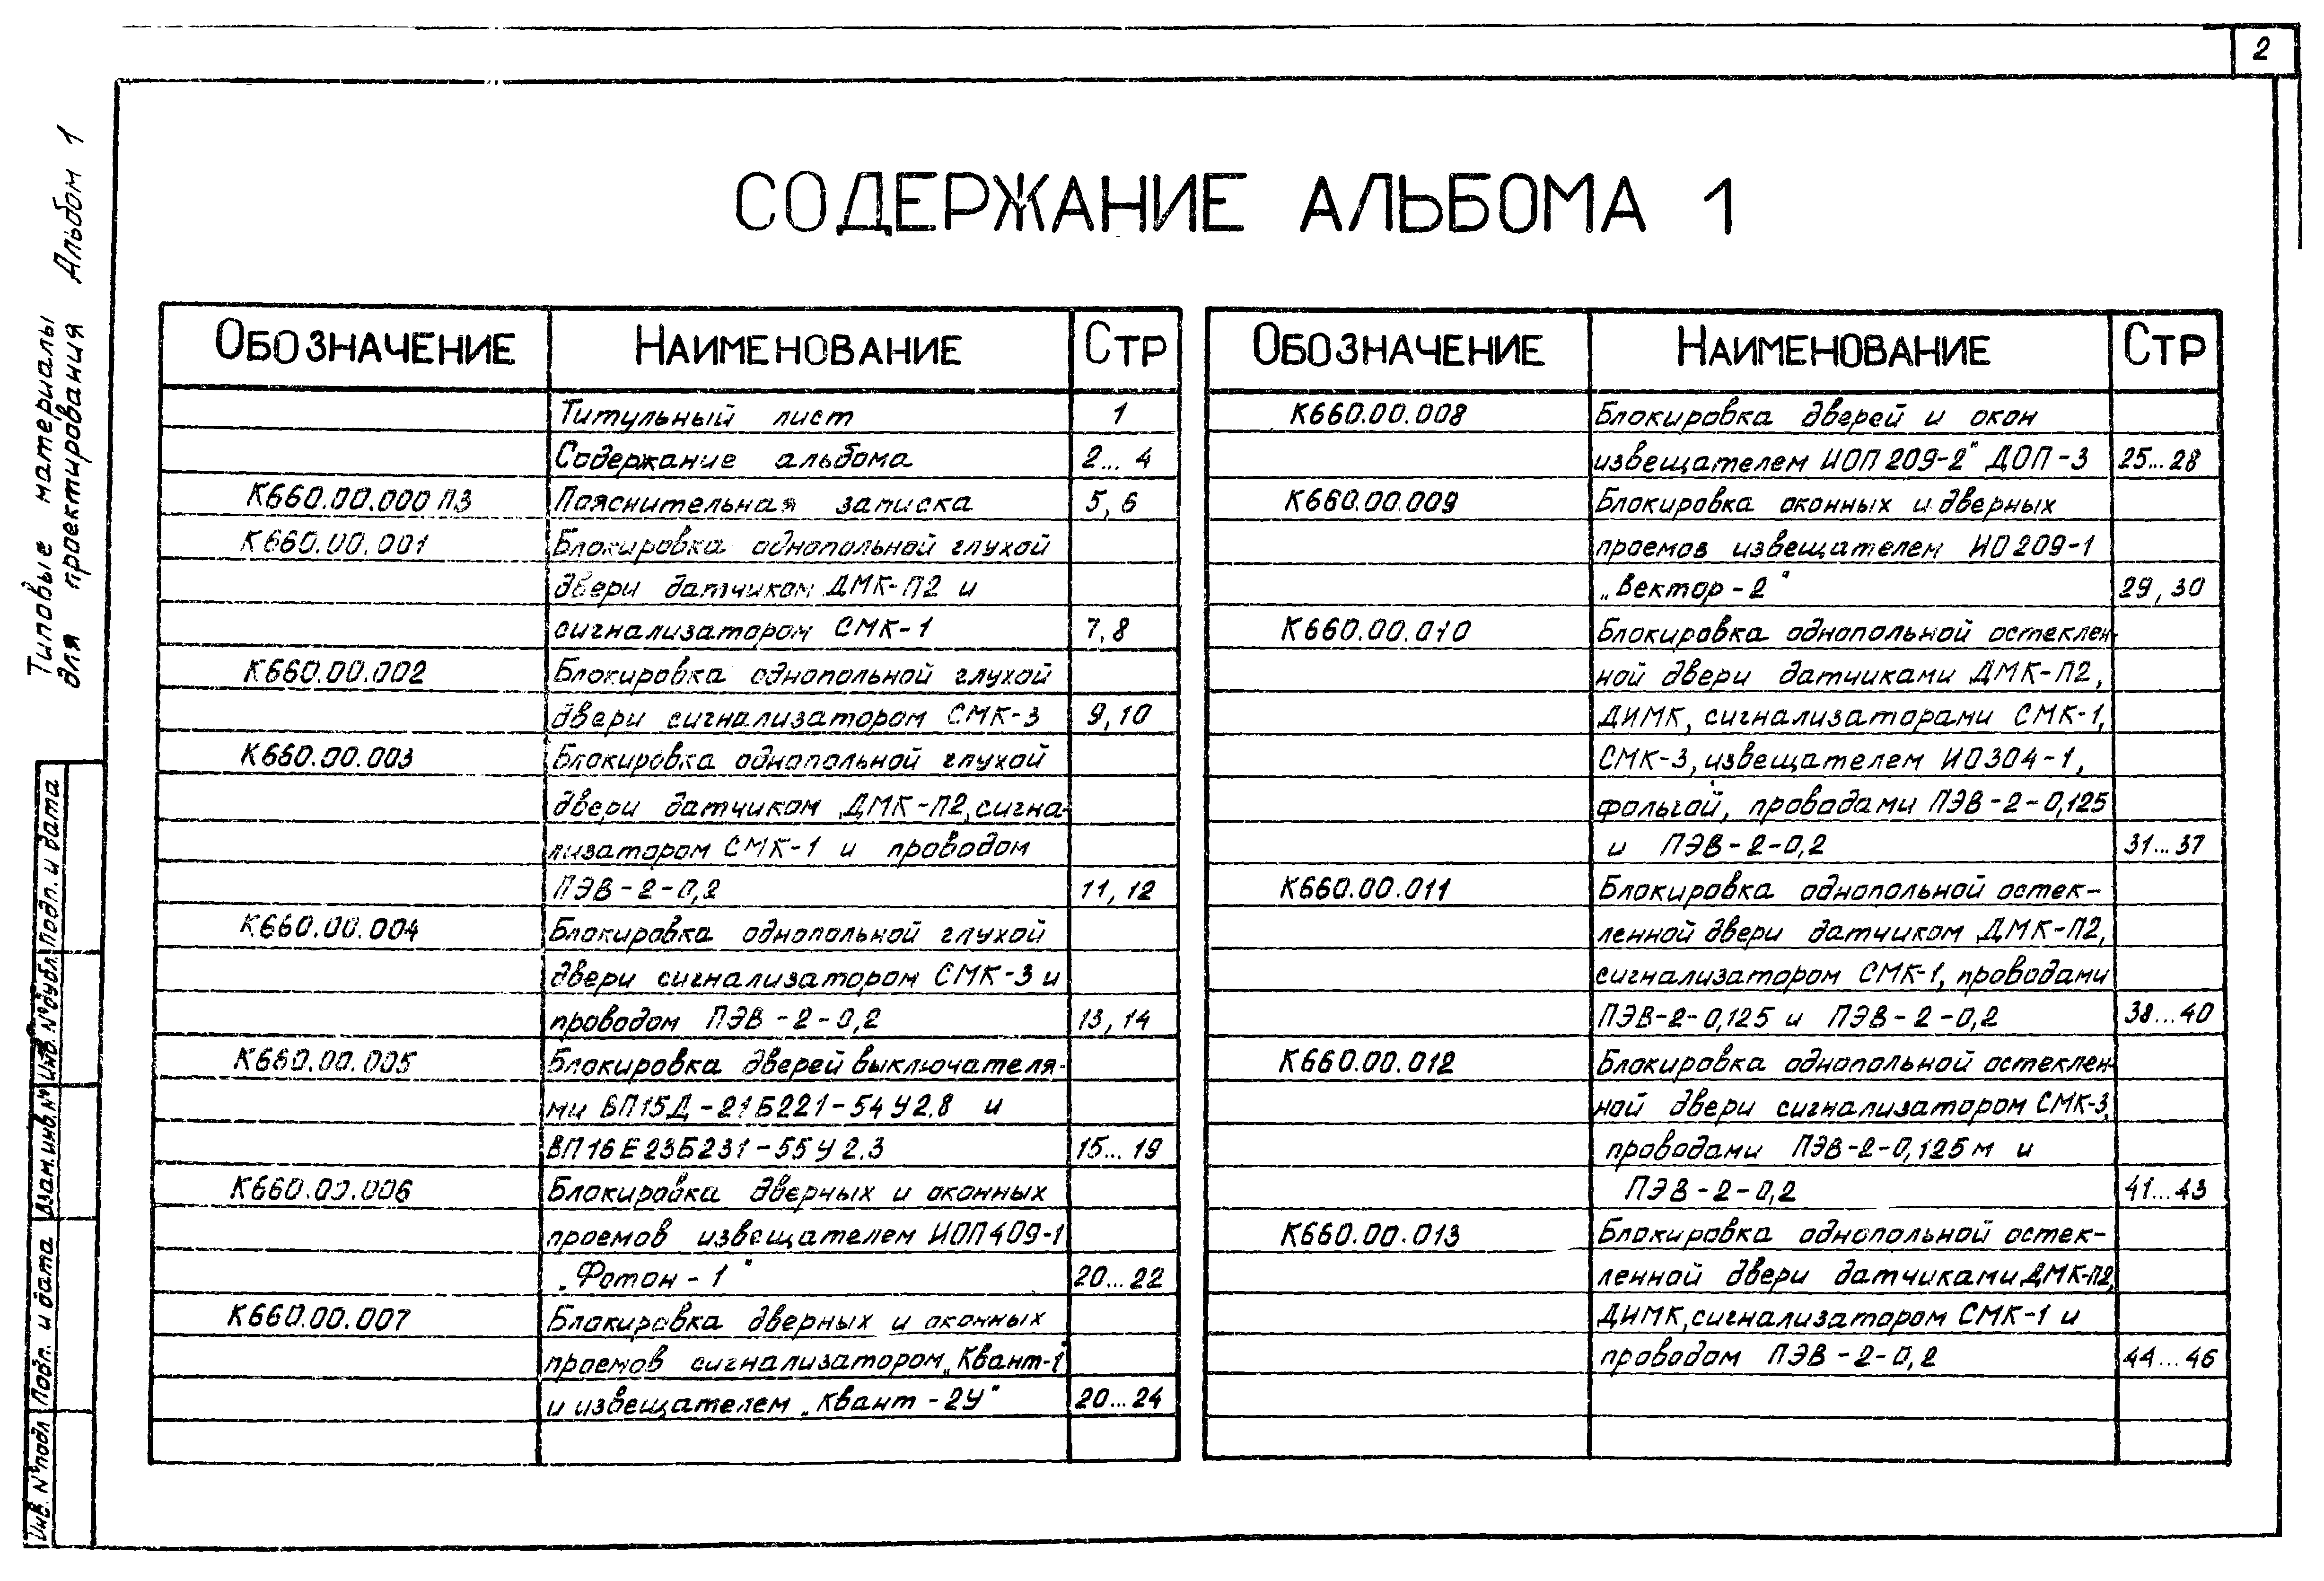 2
СОДЕРЖАНИЕ АЛЬБОМА 1
Типовые материалы
для проектирования Альбом 1
Обозначение Наименование Стр
Титульный лист 1
Содержание альбома 2... 4
К660.00.000 ПЗ Пояснительная записка 5, 6
К660.00.001 Блокировка однопольной глухой
двери датчиком ДМК-П2 и
сигнализатором СМК-1 7,8
К660.00.002 Блокировка однопольной глухой
двери сигнализатором СМК-3 9,10
К660.00.003 Блокировка однопольной глухой
двери датчиком ДМК-П2, сигна-
лизатором СМК-1 и проводом
ПЭВ-2-0,2 11, 12
К660.00.004 Блокировка однопольной глухой
двери сигнализатором СМК-3 и
проводом ПЭВ-2-0,2 13, 14
К660.00.005 Блокировка дверей выключателя-
ми ВП15Д-21Б221-54У2.8 и
ВП16Е23Б231-55У2.3 15... 19
К660.00.006 Блокировка дверных и оконных
проемов извещателем ИОП409-1
„Фотон-1" 20...22
К660.00.007 Блокировка дверных и оконных
проемов сигнализатором „Квант-1"
и извещателем „Квант-2У" 20...24
Обозначение Наименование Стр
К660.00.008 Блокировка дверей и окон
извещателем ИОП 209-2" ДОП-3 25...28
К660.00.009 Блокировка оконных и дверных
проемов извещателем ИО209-1
„Вектор-2" 29, 30
К660.00.010 Блокировка однопольной остеклен-
ной двери датчиками ДМК-П2,
ДИМК, сигнализаторами СМК-1,
СМК-3, извещателем ИО304-1,
фольгой, проводами ПЭВ-2-0,125
и ПЭВ-2-0,2 31...37
К660.00.011 Блокировка однопольной остек-
ленной двери датчиком ДМК-П2,
сигнализатором СМК-1, проводами
ПЭВ-2-0,125 и ПЭВ-2-0,2 38...40
К660.00.012 Блокировка однопольной остеклен-
ной двери сигнализатором СМК-3,
проводами ПЭВ-2-0,125м и
ПЭВ-2-0,2 41...43
К660.00.013 Блокировка однопольной остек-
ленной двери датчиками ДМК-П2,
ДИМК, сигнализатором СМК-1 и
проводом ПЭВ-2-0,2 44...46
Инв. № подл Подп. и дата Взам.инв.№ Инв. № дубл Подп. и дата